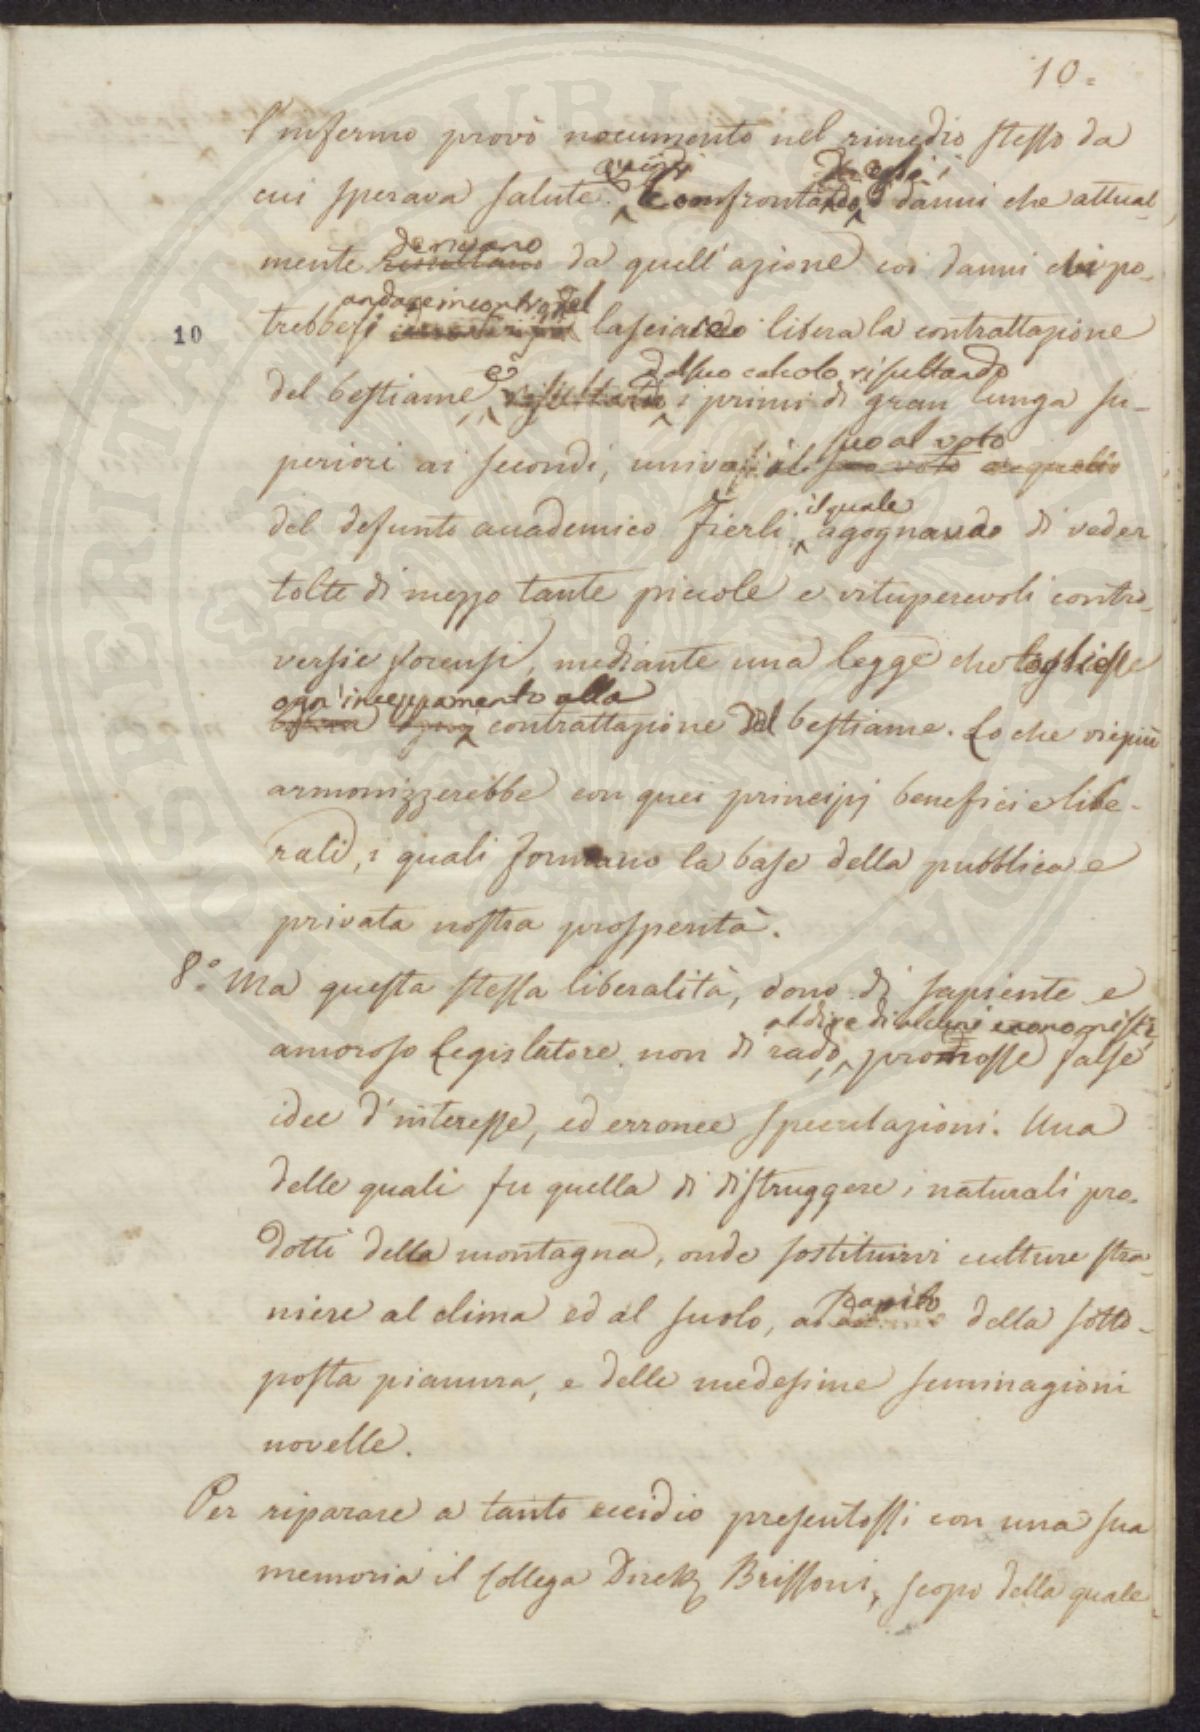 10=
l'infermo provò nocumento nel rimedio stesso da
quindi
cui sperava salute. Confrontando i danni che attual-
derivano
mente risultano da quell'azione coi danni che po-
andare incontro nel
10
trebbesi lasciando libera la contrattazione
e dal suo calcolo risultando
del bestiame, i primi di gran lunga su-
suo al voto
periori ai secondi, univa il suo voto a quello
il quale
del defunto accademico Fierli, agognando di veder
tolte di mezzo tante piccole e vituperevoli contro-
versie forensi, mediante una legge che togliesse
ogn'inceppamento alla
contrattazione del bestiame. Lo che viepiù
armonizzerebbe con quei principj benefici e libe-
rali, i quali formano la base della pubblica e
privata nostra prosperità.
8.° Ma questa stessa liberalità, dono di sapiente e
al dire di alcuni economisti
amoroso Legislatore, non di rado, promosse false
idee d'interesse, ed erronee speculazioni. Una
delle quali fu quella di distruggere i naturali pro-
dotti della montagna, onde sostituirvi culture stra-
niere al clima ed al suolo, a della sotto-
posta pianura, e delle medesime seminagioni
novelle.
Per riparare a tanto eccidio presentossi con una sua
memoria il Collega Brissoni, scopo della quale